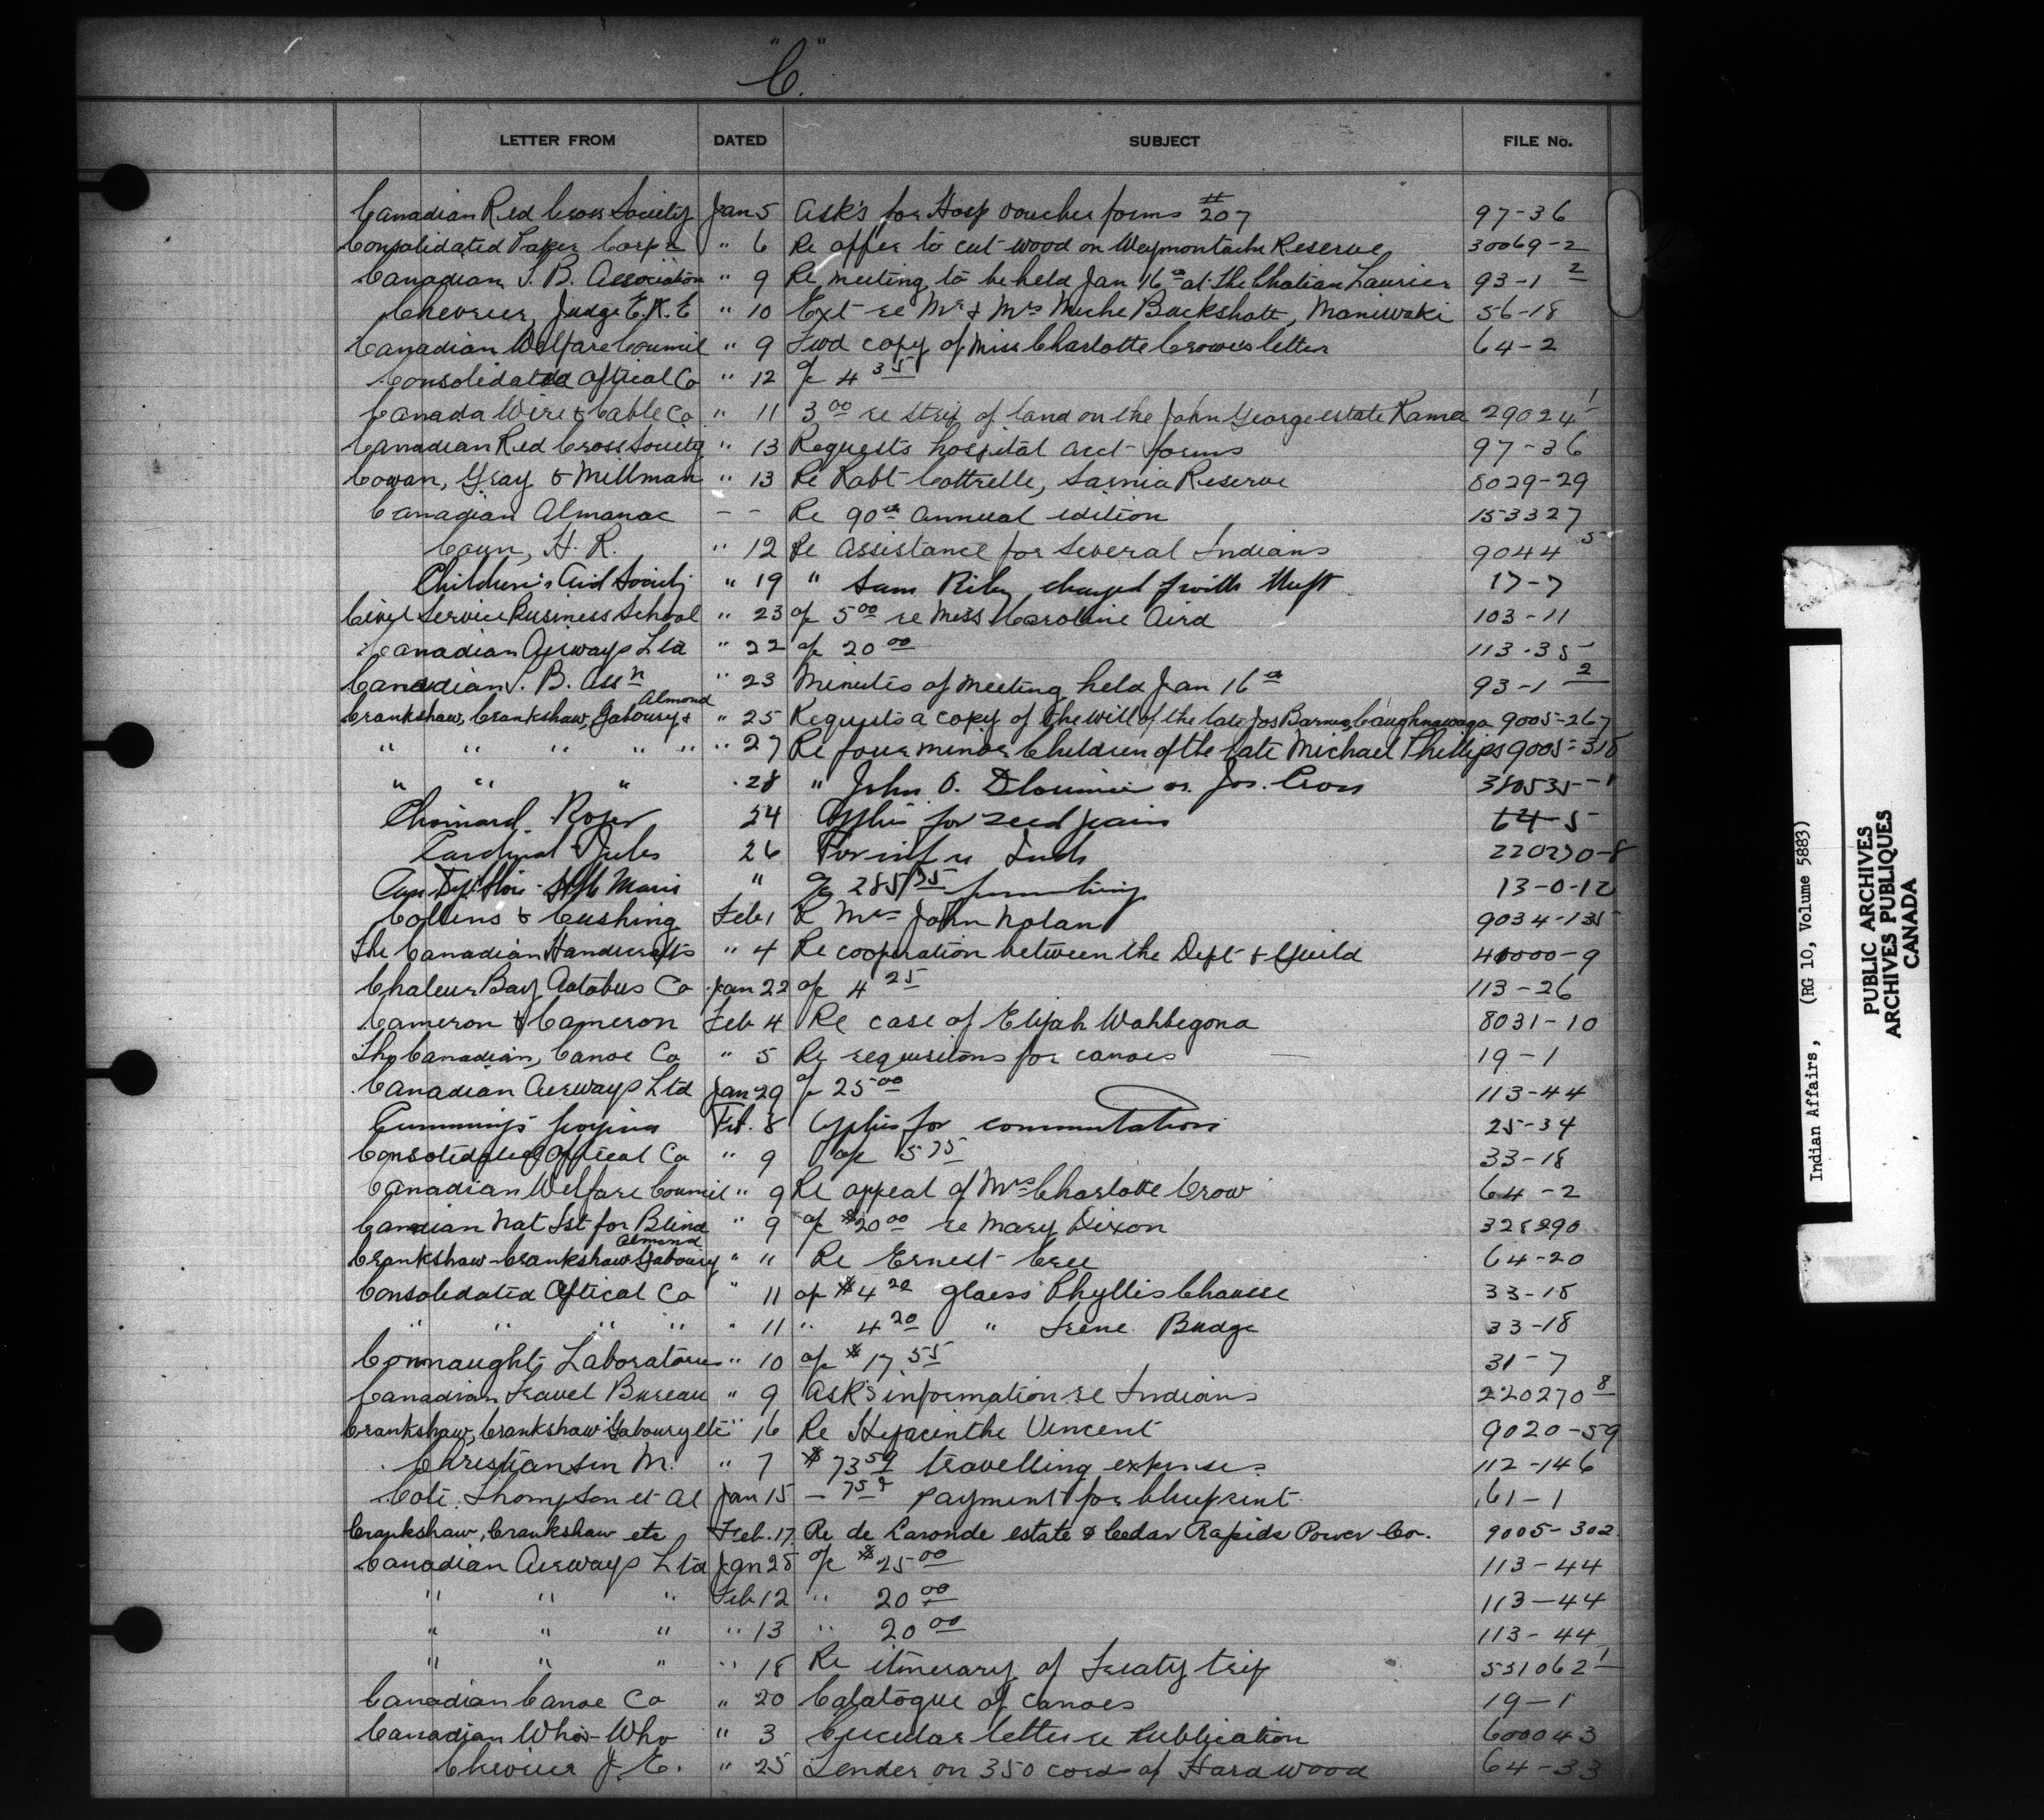 "C."
LETTER FROM DATED SUBJECT FILE No.
Canadian Red Cross Society Jan 5 Ask's for Hosp voucher forms #207 97-36
Consolidated Paper Corp'n " 6 Re offer to cut wood on Weymontachi Reserve 30069-2
Canadian T. B. Association " 9 Re meeting to be held Jan 16th at the Chateau Laurier 93-1 2
Chevrier, Judge E.R.E " 10 Ext re Mr & Mrs Miche Buckshott, Maniwaki 56-18
Canadian Welfare Council " 9 Fwd copy of Miss Charlotte Crowe's letter 64-2
Consolidated Optical Co " 12 a/c 4 35
Canada Wire & Cable Co " 11 3 00 re strip of land on the John George estate Rama 29024 1
Canadian Red Cross Society " 13 Requests hospital acct forms 97-36
Cowan, Gray & Millman " 13 Re Robt Cottrelle, Sarnia Reserve 8029-29
Canadian Almanac - - Re 90th annual edition 153327
Conn, H. R. " 12 Re assistance for several Indians 9044 5
Children's Aid Society " 19 " Sam Riley charged with theft 17-7
Civil Service Business School " 23 a/c 5 00 re Miss Caroline Aird 103-11
Canadian Airways Ltd " 22 a/c 20 00 113-35
Canadian T. B. Ass'n " 23 Minutes of meeting held Jan 16th 93-1 2
Crankshaw, Crankshaw, Gaboury & Almond " 25 Requests a copy of the will of the late Jos Barnes, Caughnawaga 9005-267
" " " " " " 27 Re four minor children of the late Michael Phillips 9005-318
" " " " 28 " John O. Delorimier or Jos. Cross 380535-1
Choinard Roger 24 Applies for seed grain 64-5
Cardinal Jules 26 For inf re Inds 220270-8
" a/c 285 75 13-0-12
Collins & Cushing Feb 1 Re Mrs John Nolan 9034-135
The Canadian Handicrafts " 4 Re cooperation between the Dept & Guild 40000-9
Chaleur Bay Autobus Co Jan 22 a/c 4 25 113-26
Cameron & Cameron Feb 4 Re case of Elijah Wahbegona 8031-10
The Canadian Canoe Co " 5 Re requisitons for canoes 19-1
Canadian Airways Ltd Jan 29 a/c 25 00 113-44
Cummings Feb. 8 Applies for commutation 25-34
Consolidated Optical Co " 9 a/c 5 75 33-18
Canadian Welfare Council " 9 Re appeal of Mrs Charlotte Crow 64-2
Canadian Nat Ist for Blind " 9 a/c $20 00 re Mary Dixon 328290
Crankshaw-Crankshaw Gaboury Almond " " Re Ernest Cree 64-20
Consolidated Optical Co " 11 a/c $4 20 glass Phyllis Chausse 33-18
" " " " " 11 " 4 20 " Irene Budge 33-18
Connaught Laboratories " 10 a/c $17 55 31-7
Canadian Travel Bureau " 9 Ask's information re Indians 220270 8
Crankshaw, Crankshaw Gaboury etc " 16 Re Hyacinthe Vincent 9020-59
Christiansen M. " 7 $73 59 travelling expenses 112-146
Cote. Thompson et al Jan 15 - 75¢ payment for blueprint 61-1
Crankshaw, Crankshaw etc Feb. 17. Re de Laronde estate & Cedar Rapids Power Co. 9005-302
Canadian Airways Ltd Jan 28 a/c $25 00 113-44
" " " Feb 12 " 20 00 113-44
" " " " 13 " 20 00 113-44
" " " " 18 Re itinerary of Treaty trip 531062 1
Canadian Canoe Co " 20 Catalogue of canoes 19-1
Canadian Who's-Who " 3 Circular letter re Publication 600043
Chevrier J. E. " 25 Tender on 350 cord of Hardwood 64-33
Indian Affairs, (RG 10, Volume 5883)
PUBLIC ARCHIVES
ARCHIVES PUBLIQUES
CANADA